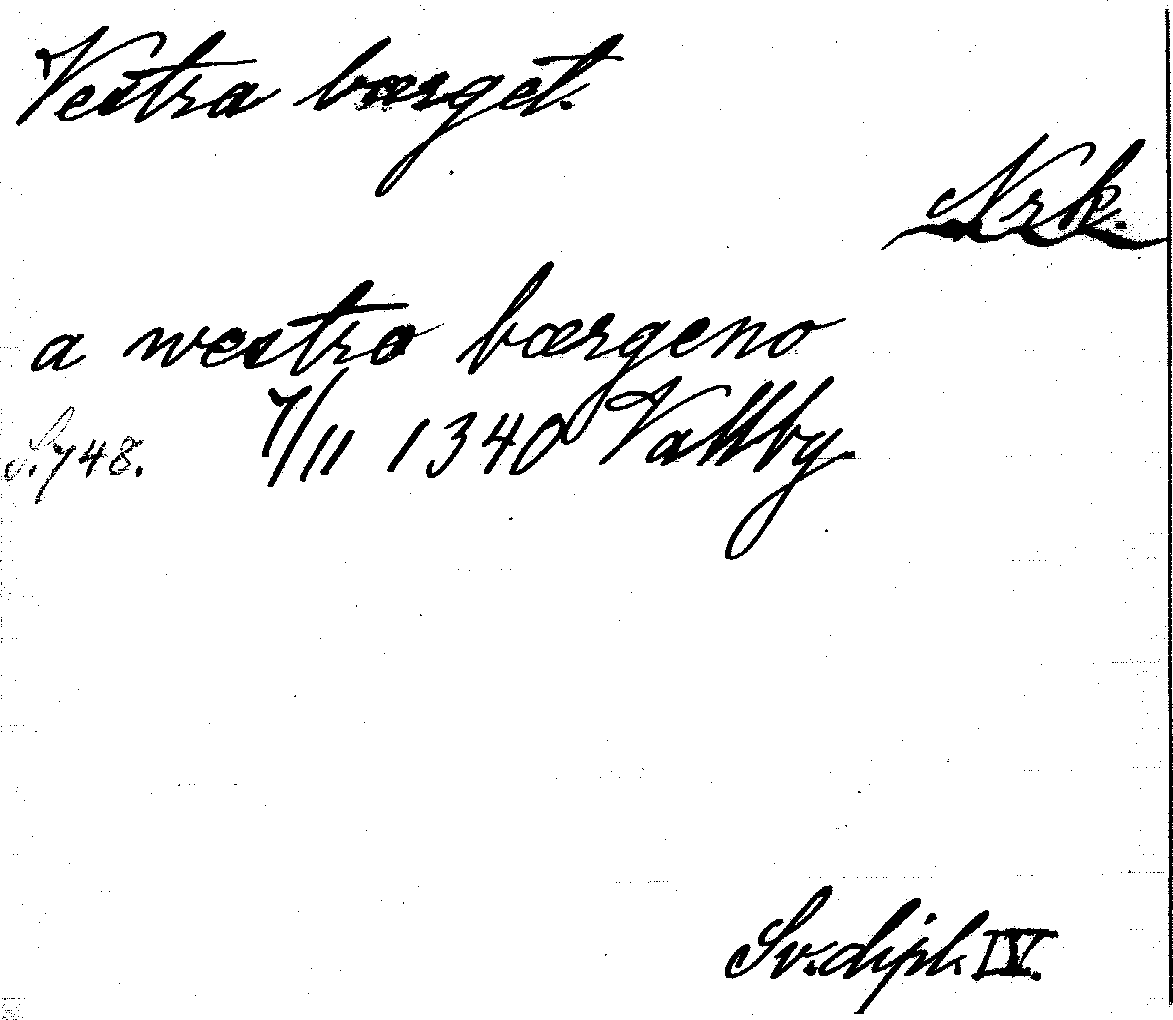 Vestra bærget.
Nrk.
a westra bærgeno
S. 748. 7/11 1340 Vallby.
Sv. dipl. IV.